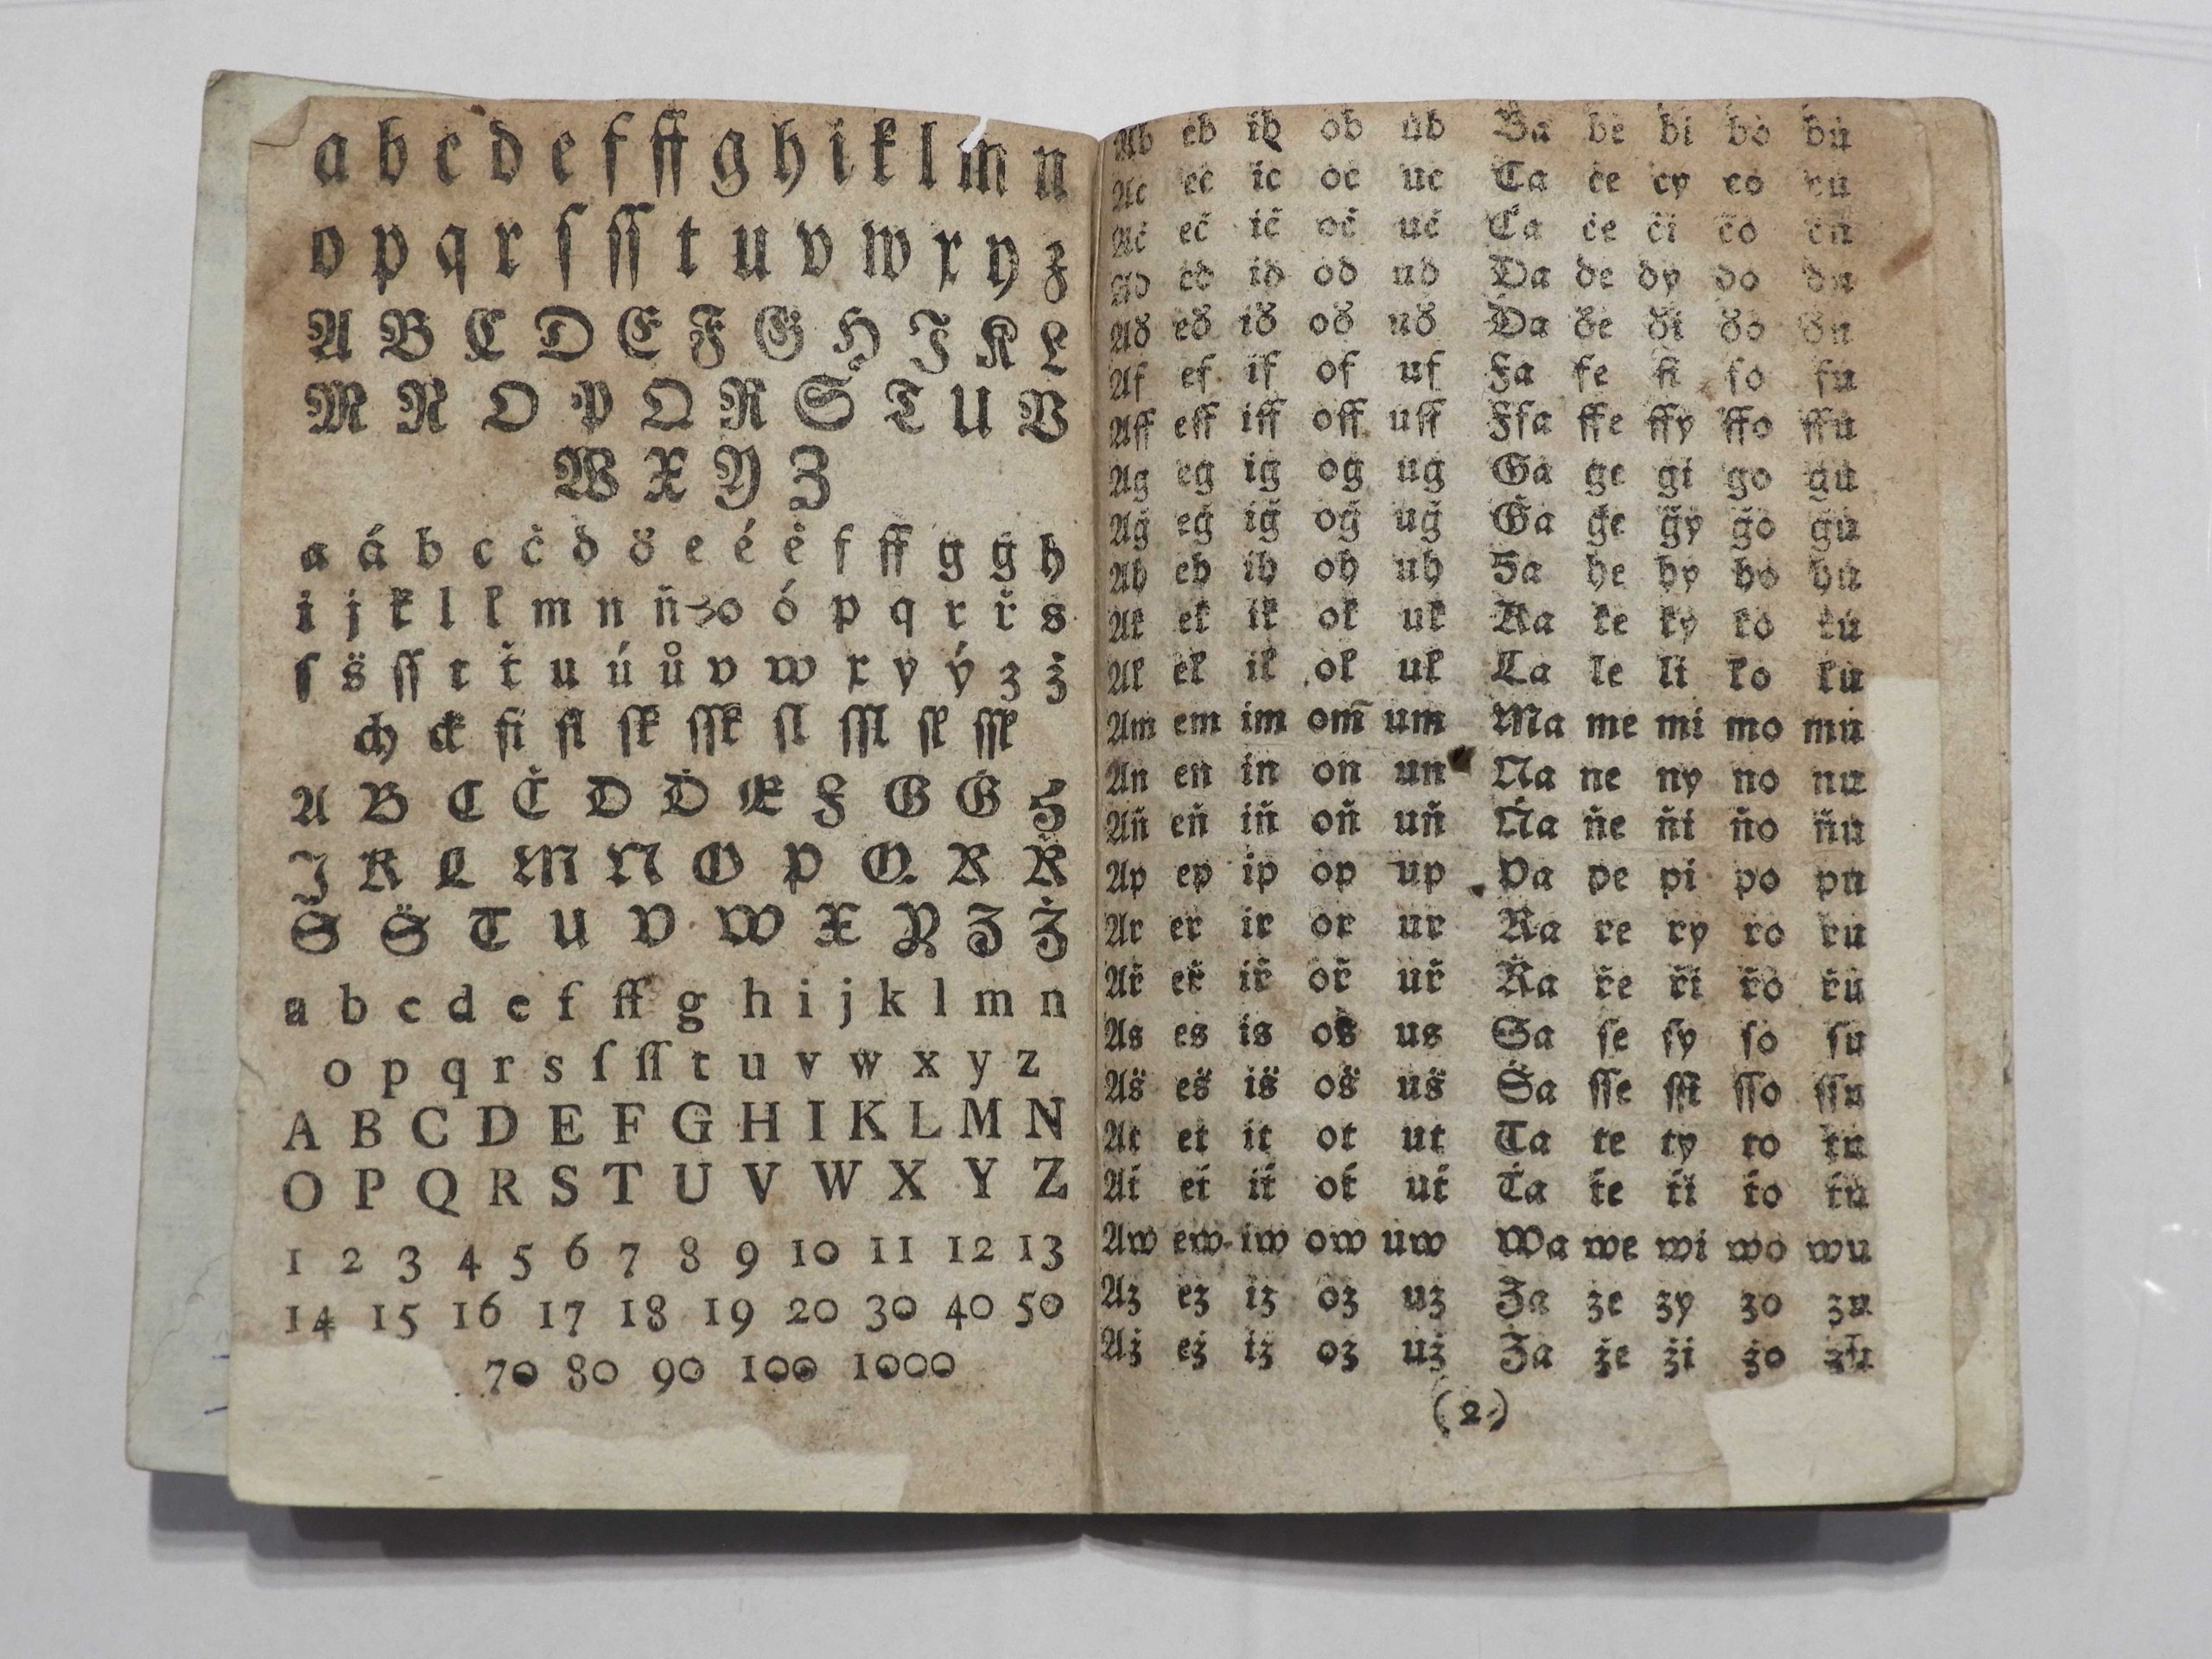 a b c d e f ff g h i k l m n
o p q r ſ ſſ t u v w x y z
A B C D E F G H J K L
M N O P Q R S T U V
W X Y Z
a á b c č d ď e é ě f ff g ğ h
i j k l ł m n ň o ó p q r ř s
ſ š ſſ t ť u ú ů v w x y ý z ž
ch ck fi fl ſk ſſk ſl ſſl ſł ſſł
A B C Č D Ď E F G Ğ H
J K L M N O P Q R Ř
S Š T U V W X Y Z Ž
a b c d e f ff g h i j k l m n
o p q r s ſ ſſ t u v w x y z
A B C D E F G H I K L M N
O P Q R S T U V W X Y Z
1 2 3 4 5 6 7 8 9 10 11 12 13
14 15 16 17 18 19 20 30 40 50
70 80 90 100 1000
Ab eb ib ob ub Ba be bi bo bu
Ac ec ic oc uc Ca ce cy co cu
Ač eč ič oč uč Ča če či čo ču
Ad ed id od ud Da de dy do du
Aď eď iď oď uď Ďa ďe ďi ďo ďu
Af ef if of uf Fa fe fi fo fu
Aff eff iff off uff Ffa ffe ffy ffo ffu
Ag eg ig og ug Ga ge gi go gu
Ağ eğ iğ oğ uğ Ğa ğe ğy ğo ğu
Ah eh ih oh uh Ha he hy ho hu
Ak ek ik ok uk Ka ke ky ko ku
Ał eł ił oł uł La le li ło łu
Am em im om̄ um Ma me mi mo mu
An en in on un Na ne ny no nu
Aň eň iň oň uň Ňa ňe ňi ňo ňu
Ap ep ip op up Pa pe pi po pu
Ar er ir or ur Ra re ry ro ru
Ař eř iř oř uř Řa ře ři řo řu
As es is os us Sa ſe ſy ſo ſu
Aš eš iš oš uš Ša ſſe ſſi ſſo ſſu
At et it ot ut Ta te ty to tu
Ať eť iť oť uť Ťa ťe ťi ťo ťu
Aw ew iw ow uw Wa we wi wo wu
Az ez iz oz uz Za ze zy zo zu
Až ež iž ož už Ža že ži žo žu
(2)